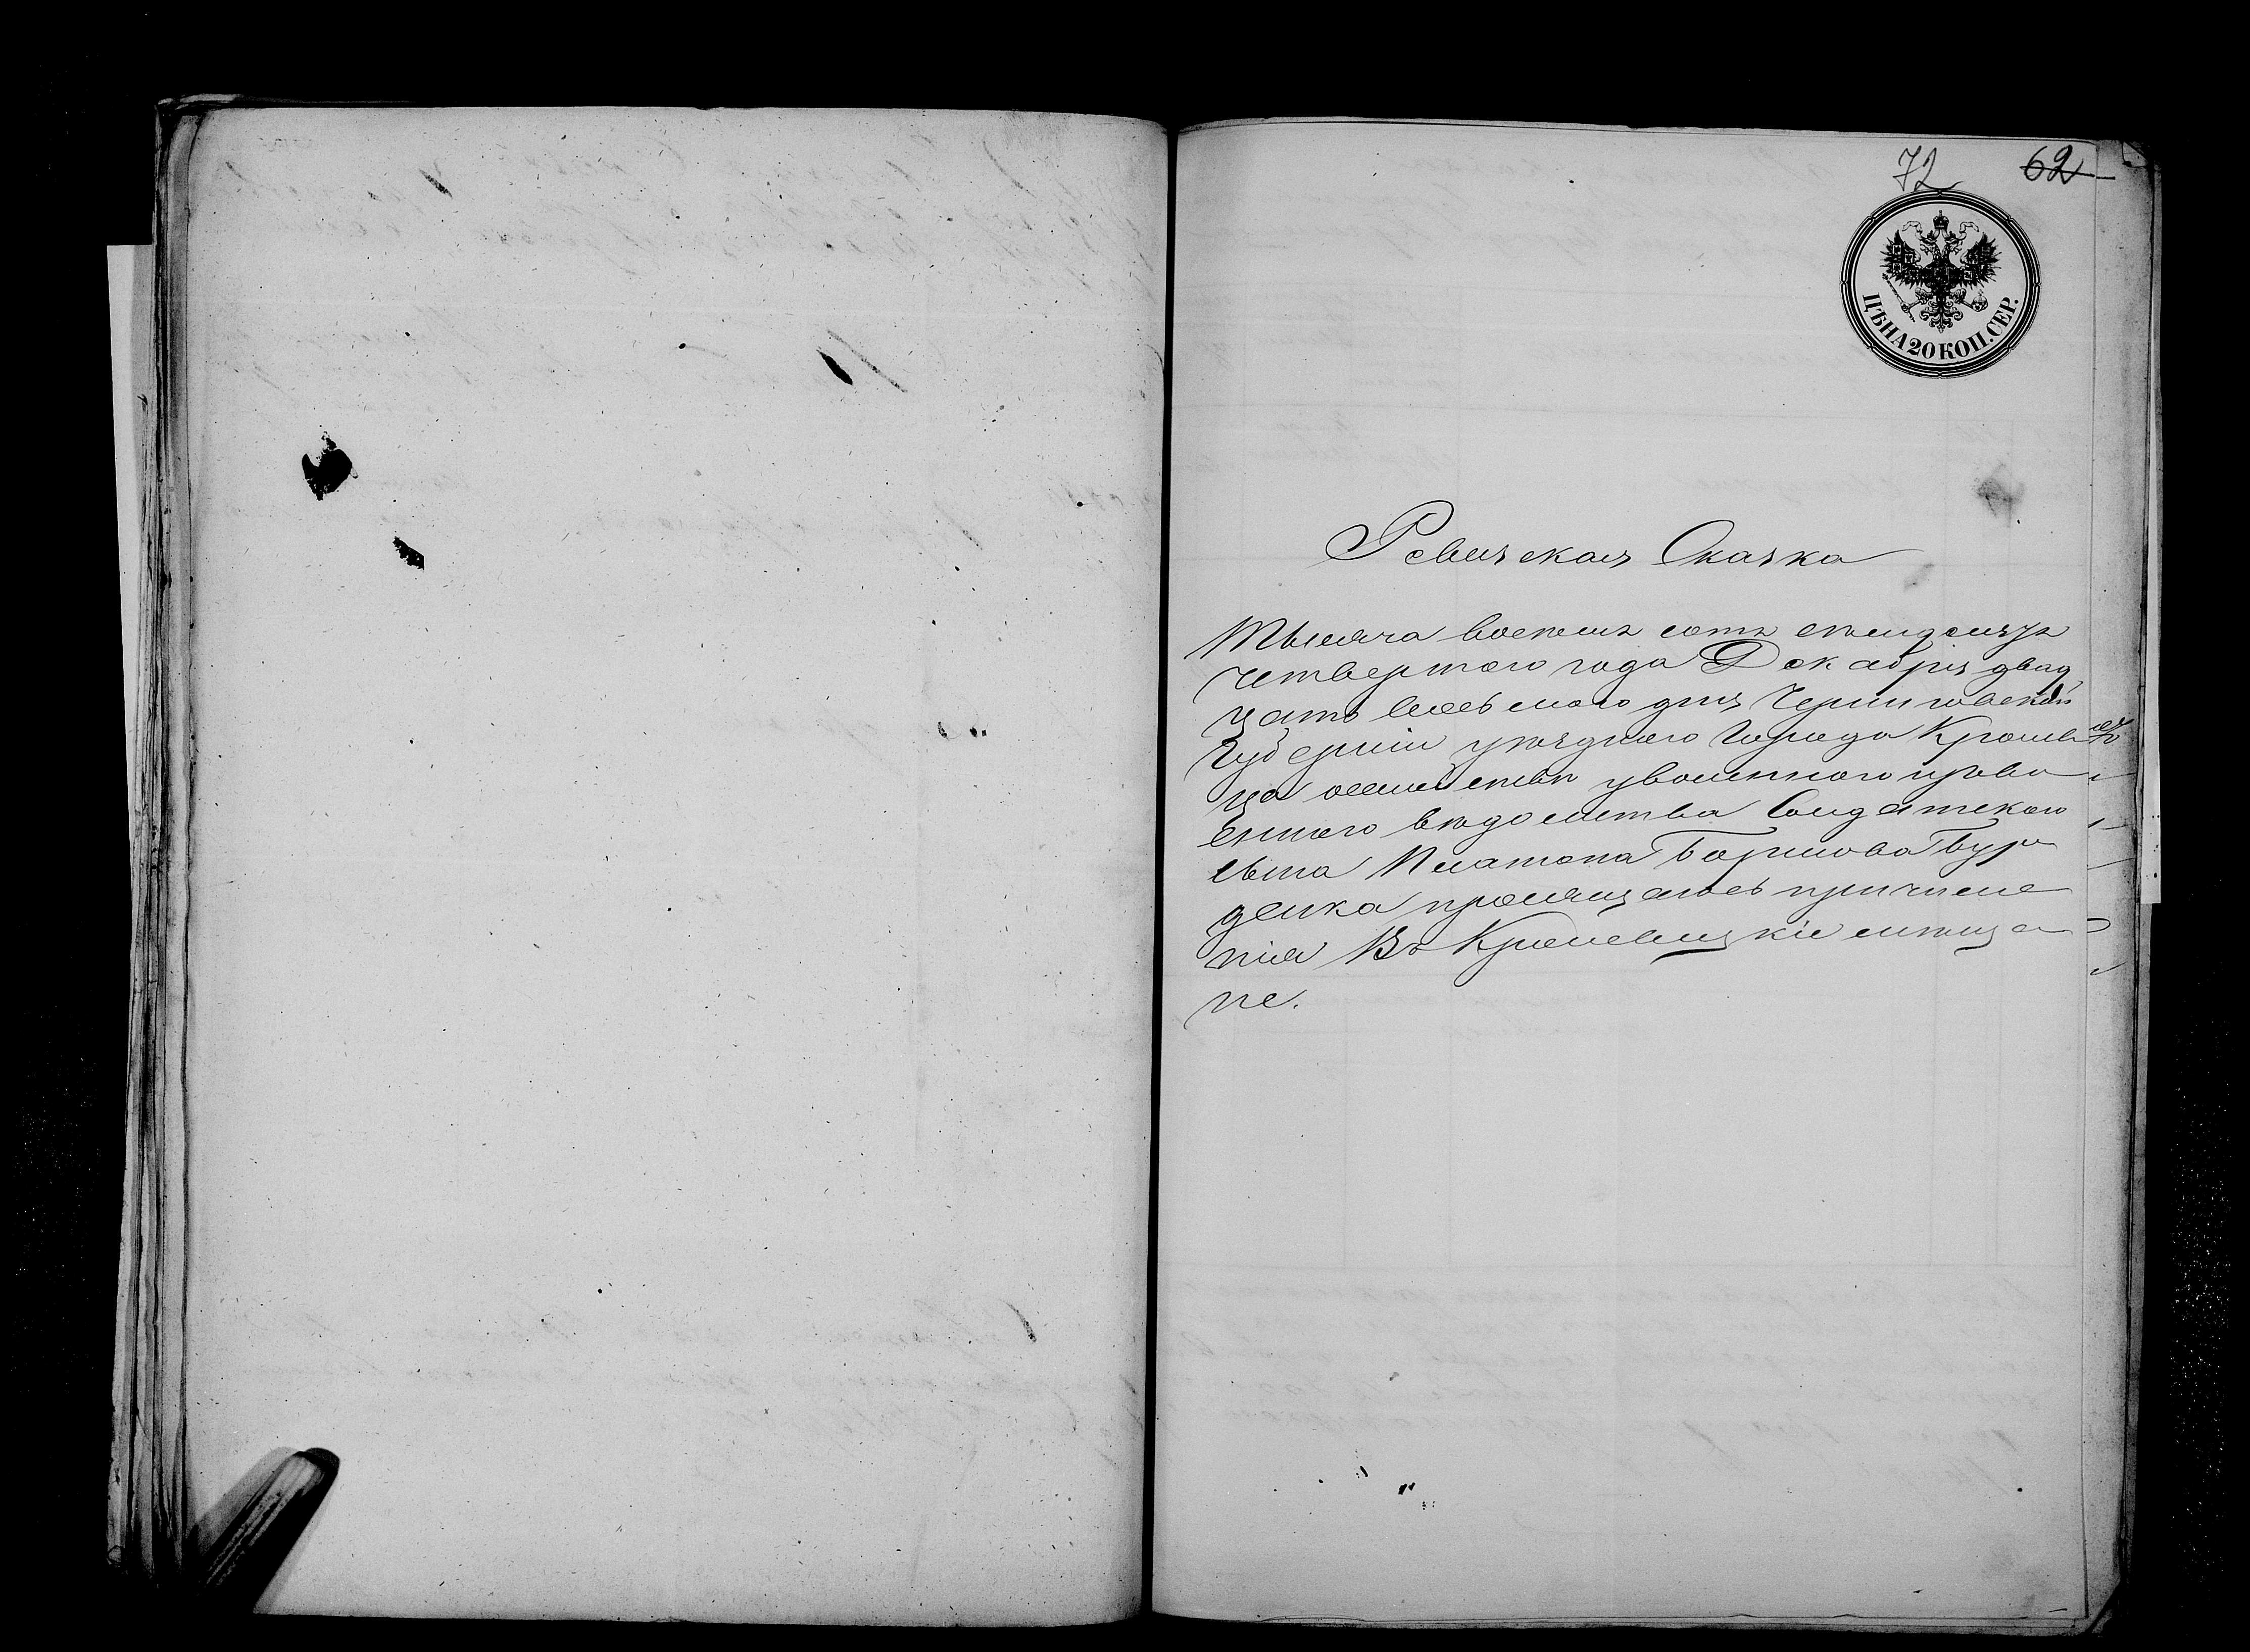 72 62
ЦѢНА 20 КОП. СЕР.
Ревизская Сказка
Тысяча восемь сотъ семьдесятъ
четвертого года Декабря двад
цать восьмого дня Черниговской
Губерніи уѣздного Города Кролев
ца семейства уволенного
енного вѣдомства Солдатского
сына Платона Борисова Бур
денка причисле
нія Въ Кролевецкіе мѣща
не.